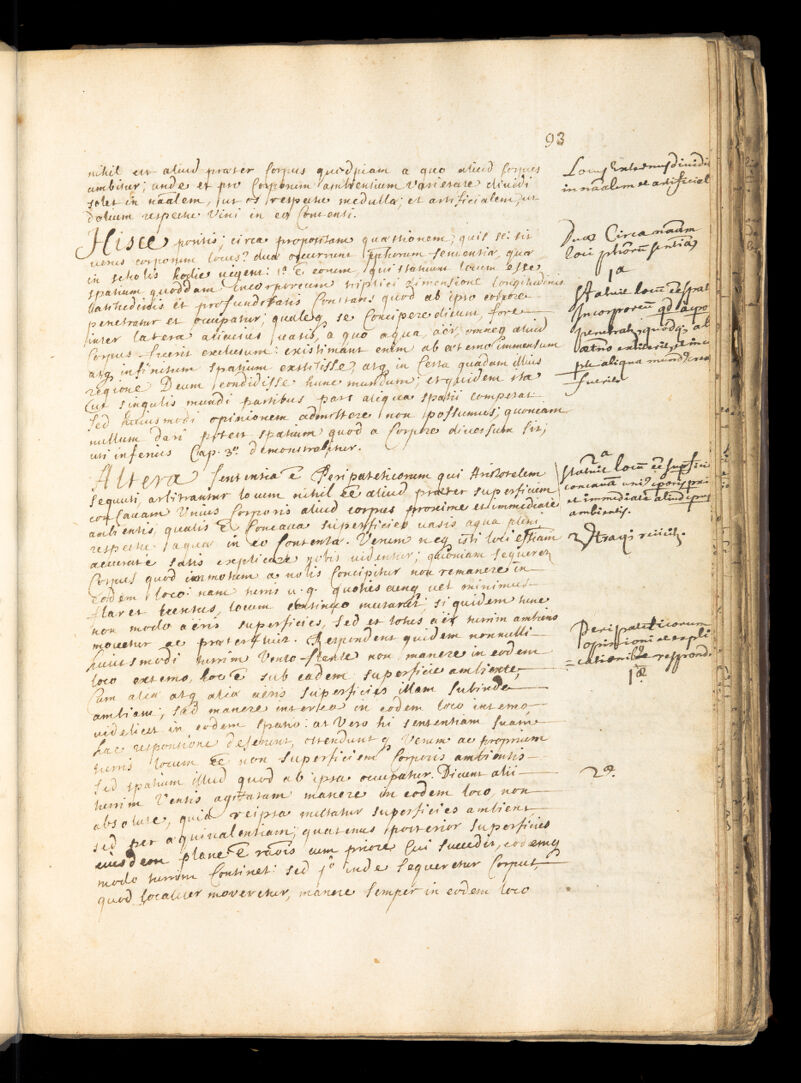 93
nihil est aliud præter Corpus quodpiam a quo aliud Corpus
ambitur; unde et pro Corporum ambientium varietate dividi
solet in naālem, ut os respectu medullæ; et artificialem, ut
dolium respectu Vini in eo Contenti.
Hisce positis; circa propositam quæstionem; quis sc: sit
verus corporum locus? duæ occurrunt sententiæ, quæ
in scholis hodie vigent: 1ª ē eorum, qui statuunt locum esse
spatium quoddam incorporeum triplici dimensione longitudinis
latitudinis et profunditatis Constans quod ab ipso corpore
penetratur et occupatur; quale se Concipere dicunt, fore
inter latera alicuius vasis, a quo aqua, aër, omneq aliud
Corpus fuerit exclusum: existimant enim ab æterno immensum
atq infinitum spatium exstitisse, atq in Certa quadam illius
regione Deum condidisse hunc mundum; et quidem ita
ut singulis mundi partibus pars aliqua spatii competat
sed huiusmodi opinionem admittere non possumus; quoniam
nullum dari potest spatium quod a Corpore diversum sit;
uti inferius Cap. 3º demonstrabitur.
Altera sententia ē Peripateticorum qui Aristotelem
sequuti, arbitrantur locum nihil ēē aliud, præter superficiem
concavam Unius Corporis aliud corpus proxime et immediate
ambientis; qualis ē Concava superficies vasis aqua pleni
respectu aquæ in eo Contentæ. Verum neq isti loci essentiam
accurate satis explicare nobis videntur; quoniam sequeretur
Corpus quod immotum a nobis Concipitur non remanere in
eodem loco: nam turris v.g. quoties cunq vel minimus
flaret Ventus, locum Continuo mutaret; siquidem tunc
non modo aëris superficies, sed et totus aër turrim ambiens
movetur ac præterfluit. Respondent quidem nonnulli
huiusmodi turrim Vento flante non manere in eodem
loco externo, hoc ē sub eadem superficie ambiente;
Cum alia atq alia aëris superficies illam subinde
ambiant; sed manere interea in eodem loco interno
videlicet in eodem spatio: at Vero hi sententiam suam
hac responsione deserunt, ostenduntq Verum ac proprium
turris locum ēē non superficiem Corporis ambientis
sed spatium illud quod ab ipsa occupatur. Dicunt alii
turrim Ventis agitatam manere in eodem loco, non
absolute, quia reipsa mutatur superficies ambiens
sed per æquivalentiam; quatenus posterior superficies
eiusdem plane ē raōis cum priore Cui succedit, eodemq
modo turrim Continet: sed 1º inde sequeretur Corpus,
quod localiter moveretur, manere semper in eodem loco
Locus externus dividi
in naālem et artificial
Duæ Circa naām
loci phorum sentiæ
1ª
Statuit locum ēē spat
Incorporeum qd a corpo
penetrat,
fuerit
2ª
Statuit locum ēē supfici
concavam unius corporis pxi
et immediate aliud corpus
ambientis.
Peripateticorum
opinioni et expli
=cationi respond.
1ª
2ª.